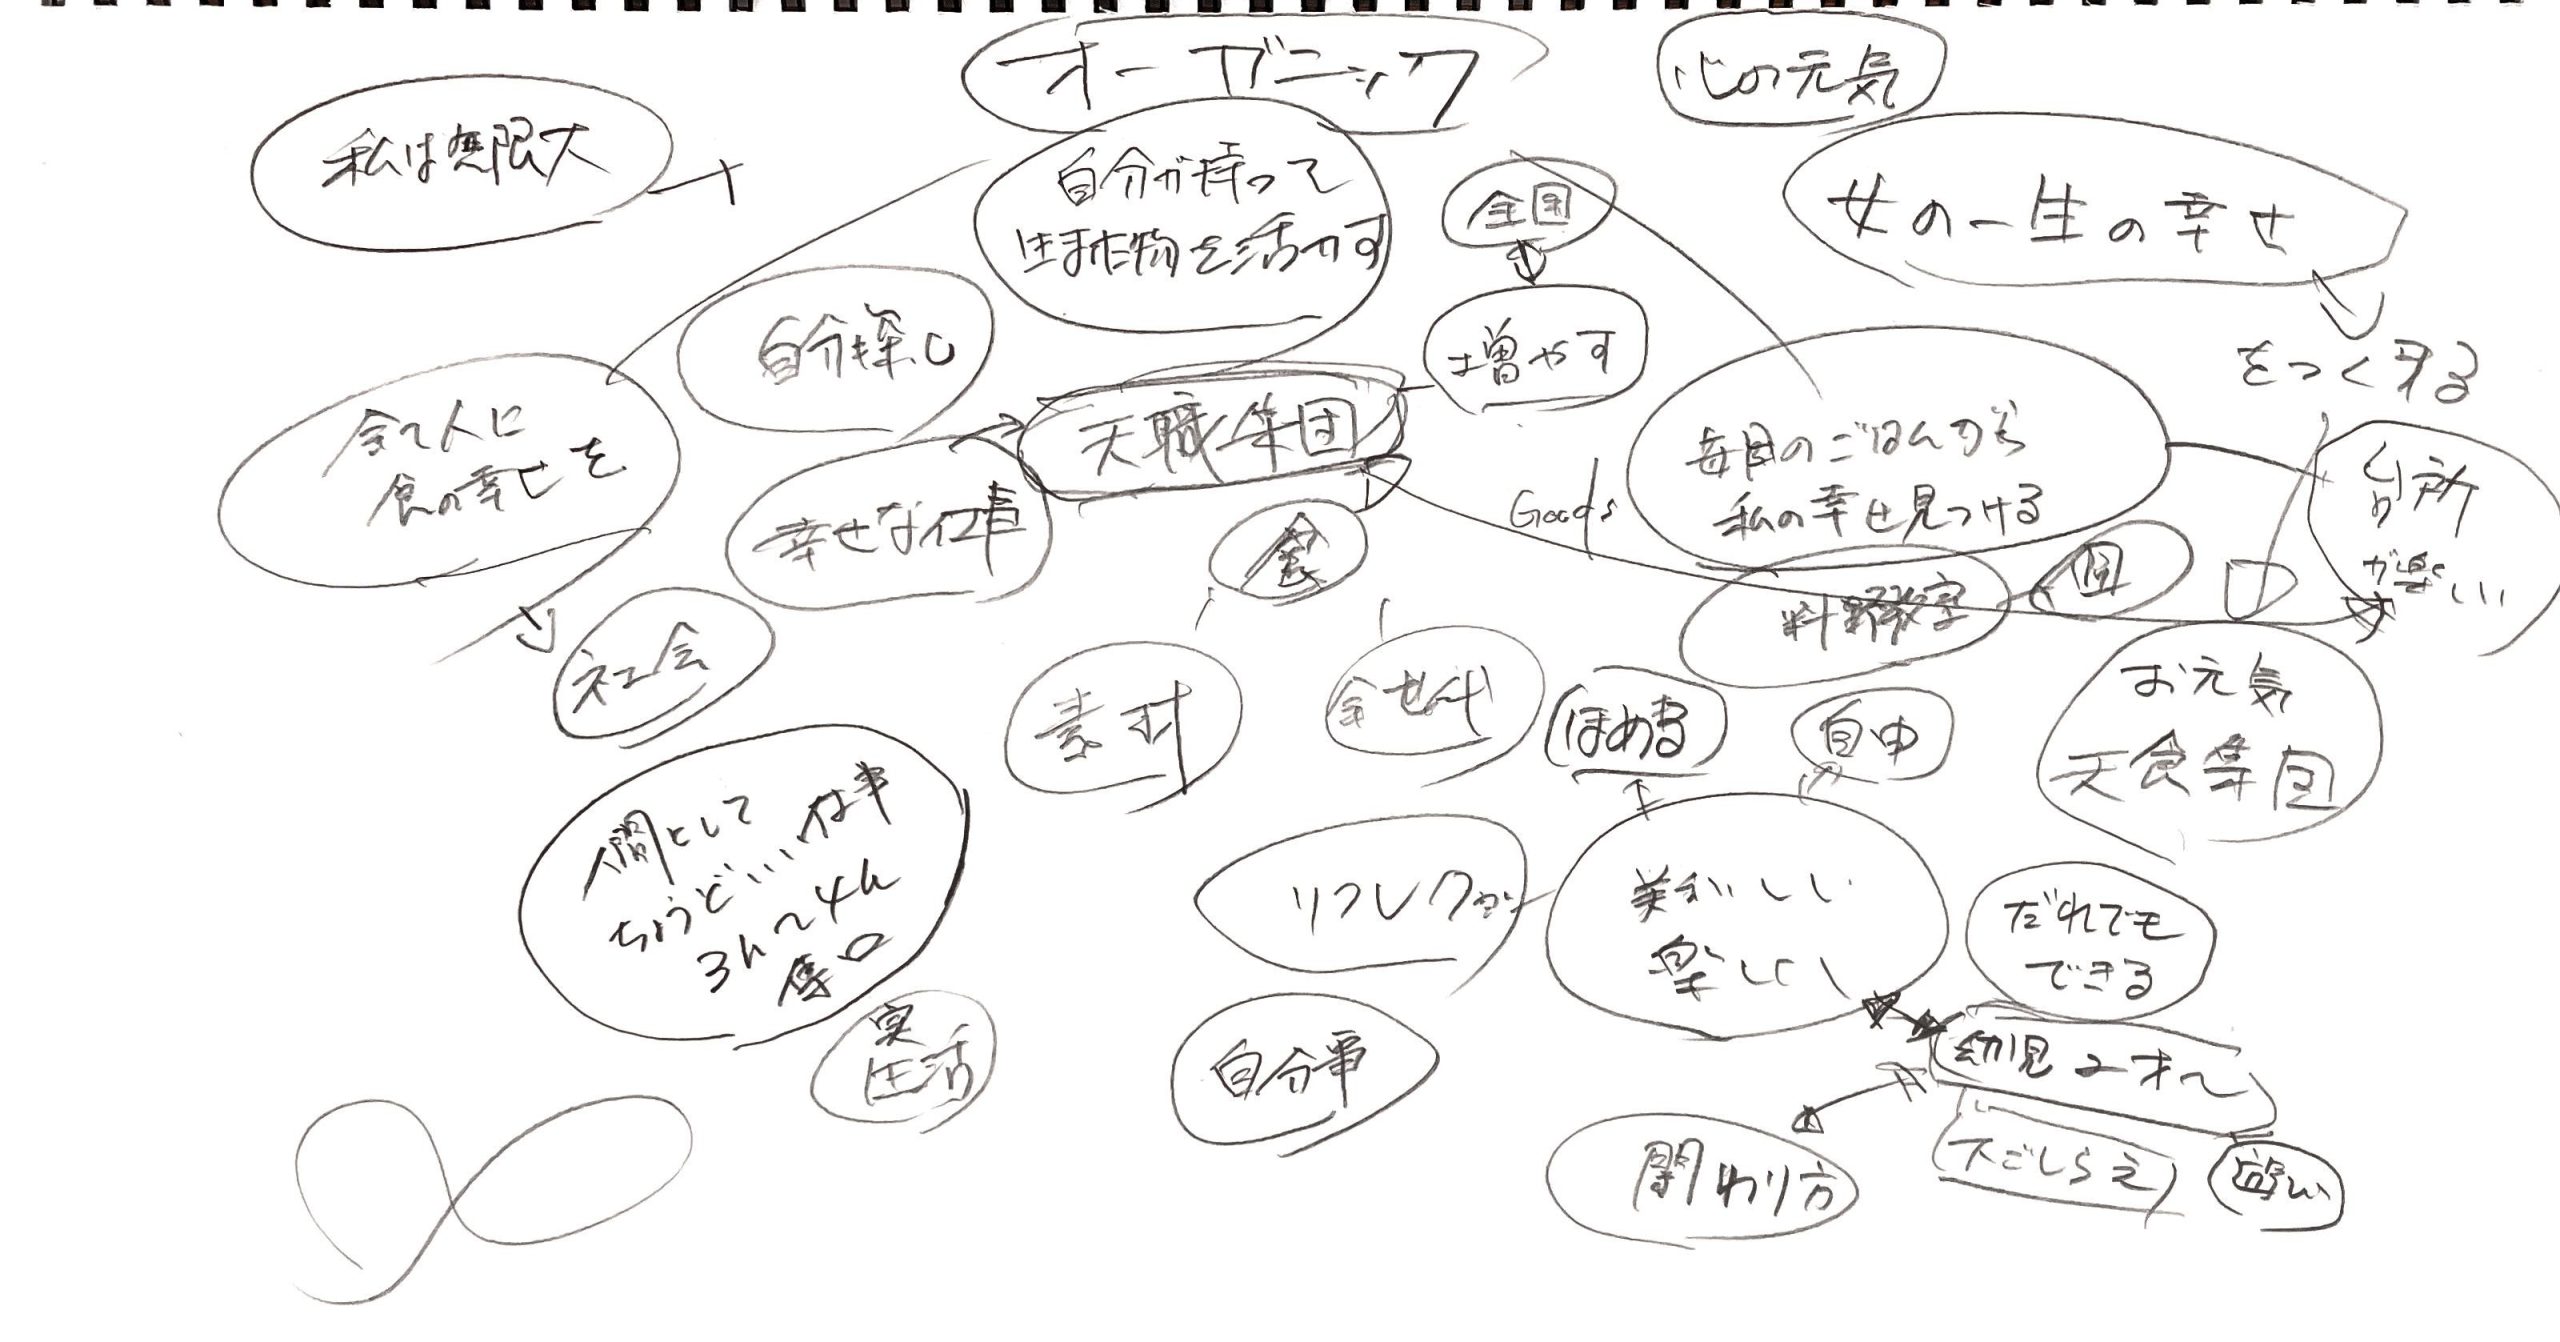 オーガニック
心の元気
私は無限大
自分が持って
生まれ物を活かす
全国
女の一生の幸せ
自分探し
増やす
をつくる
全て人に
食の幸せを
天職集団
毎日のごはんから
私の幸せ見つける
台所
が楽しい
幸せな仕事
Goods
食
料理教室
社会
素材
全せ代
ほめる
自由
お元気
天食集団
人間として
ちょうどいい仕事
3h〜4h
リフレクション
美おいしい
楽しい
だれでも
できる
実
生活
自分事
幼児2才〜
関わり方
下ごしらえ